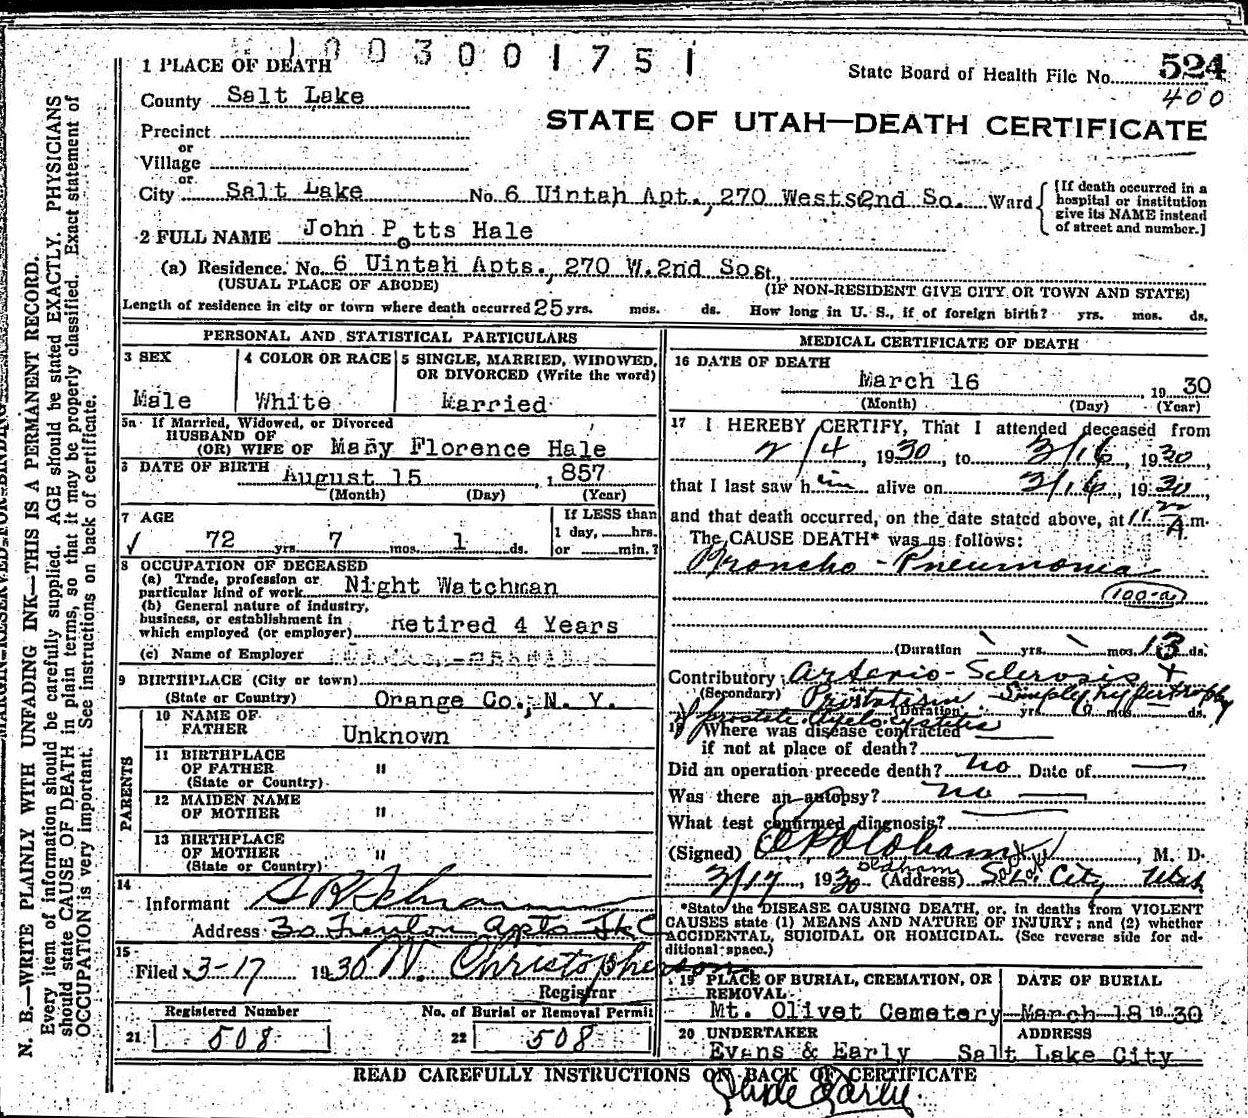 1003001751
1 PLACE OF DEATH
State Board of Health File No. 524
400
County Salt Lake
STATE OF UTAH—DEATH CERTIFICATE
Precinct
or
Village
or
City Salt Lake No. 6 Uintah Apt., 270 West 2nd So. Ward
[If death occurred in a
hospital or institution
give its NAME instead
of street and number.]
2 FULL NAME John Potts Hale
(a) Residence. No. 6 Uintah Apts., 270 W.2nd So. St.,
(USUAL PLACE OF ABODE) (IF NON-RESIDENT GIVE CITY OR TOWN AND STATE)
Length of residence in city or town where death occurred 25 yrs. mos. ds. How long in U. S., if of foreign birth? yrs. mos. ds.
PERSONAL AND STATISTICAL PARTICULARS
3 SEX
Male
4 COLOR OR RACE
White
5 SINGLE, MARRIED, WIDOWED,
OR DIVORCED (Write the word)
Married
5a If Married, Widowed, or Divorced
HUSBAND OF
(OR) WIFE OF Mary Florence Hale
6 DATE OF BIRTH August 15, 1857
(Month) (Day) (Year)
7 AGE
72 yrs. 7 mos. 1 ds.
If LESS than
1 day, hrs.
or min.?
8 OCCUPATION OF DECEASED
(a) Trade, profession or
particular kind of work Night Watchman
(b) General nature of industry,
business, or establishment in
which employed (or employer) Retired 4 Years
(c) Name of Employer
9 BIRTHPLACE (City or town)
(State or Country) Orange Co., N. Y.
PARENTS
10 NAME OF
FATHER Unknown
11 BIRTHPLACE
OF FATHER "
(State or Country)
12 MAIDEN NAME
OF MOTHER "
13 BIRTHPLACE
OF MOTHER "
(State or Country)
14
Informant
Address 30 Apts
15
Filed 3-17 1930 W. Christopherson
Registrar
Registered Number
21 508
No. of Burial or Removal Permit
22 508
MEDICAL CERTIFICATE OF DEATH
16 DATE OF DEATH
March 16 1930
(Month) (Day) (Year)
17 I HEREBY CERTIFY, That I attended deceased from
2/4, 1930, to 3/16, 1930,
that I last saw him alive on 3/16, 1930,
and that death occurred, on the date stated above, at 11 A.m.
The CAUSE DEATH* was as follows:
Broncho-Pneumonia
100-a
(Duration yrs. mos. 13 ds.
Contributory Arterio-Sclerosis +
(Secondary) Simple hypertrophy
(Duration yrs. mos. ds.
of prostate
18 Where was disease contracted
if not at place of death?
Did an operation precede death? no Date of
Was there an autopsy? no
What test confirmed diagnosis?
(Signed) , M. D.
3/17, 1930 (Address) Salt Lake City Utah
*State the DISEASE CAUSING DEATH, or, in deaths from VIOLENT
CAUSES state (1) MEANS AND NATURE OF INJURY; and (2) whether
ACCIDENTAL, SUICIDAL OR HOMICIDAL. (See reverse side for ad-
ditional space.)
19 PLACE OF BURIAL, CREMATION, OR
REMOVAL
Mt. Olivet Cemetery
DATE OF BURIAL
March 18 1930
20 UNDERTAKER
Evans & Early
ADDRESS
Salt Lake City
READ CAREFULLY INSTRUCTIONS ON BACK OF CERTIFICATE
Clyde Early
MARGIN RESERVED FOR BINDING
N. B.—WRITE PLAINLY WITH UNFADING INK—THIS IS A PERMANENT RECORD.
Every item of information should be carefully supplied. AGE should be stated EXACTLY. PHYSICIANS
should state CAUSE OF DEATH in plain terms, so that it may be properly classified. Exact statement of
OCCUPATION is very important. See instructions on back of certificate.